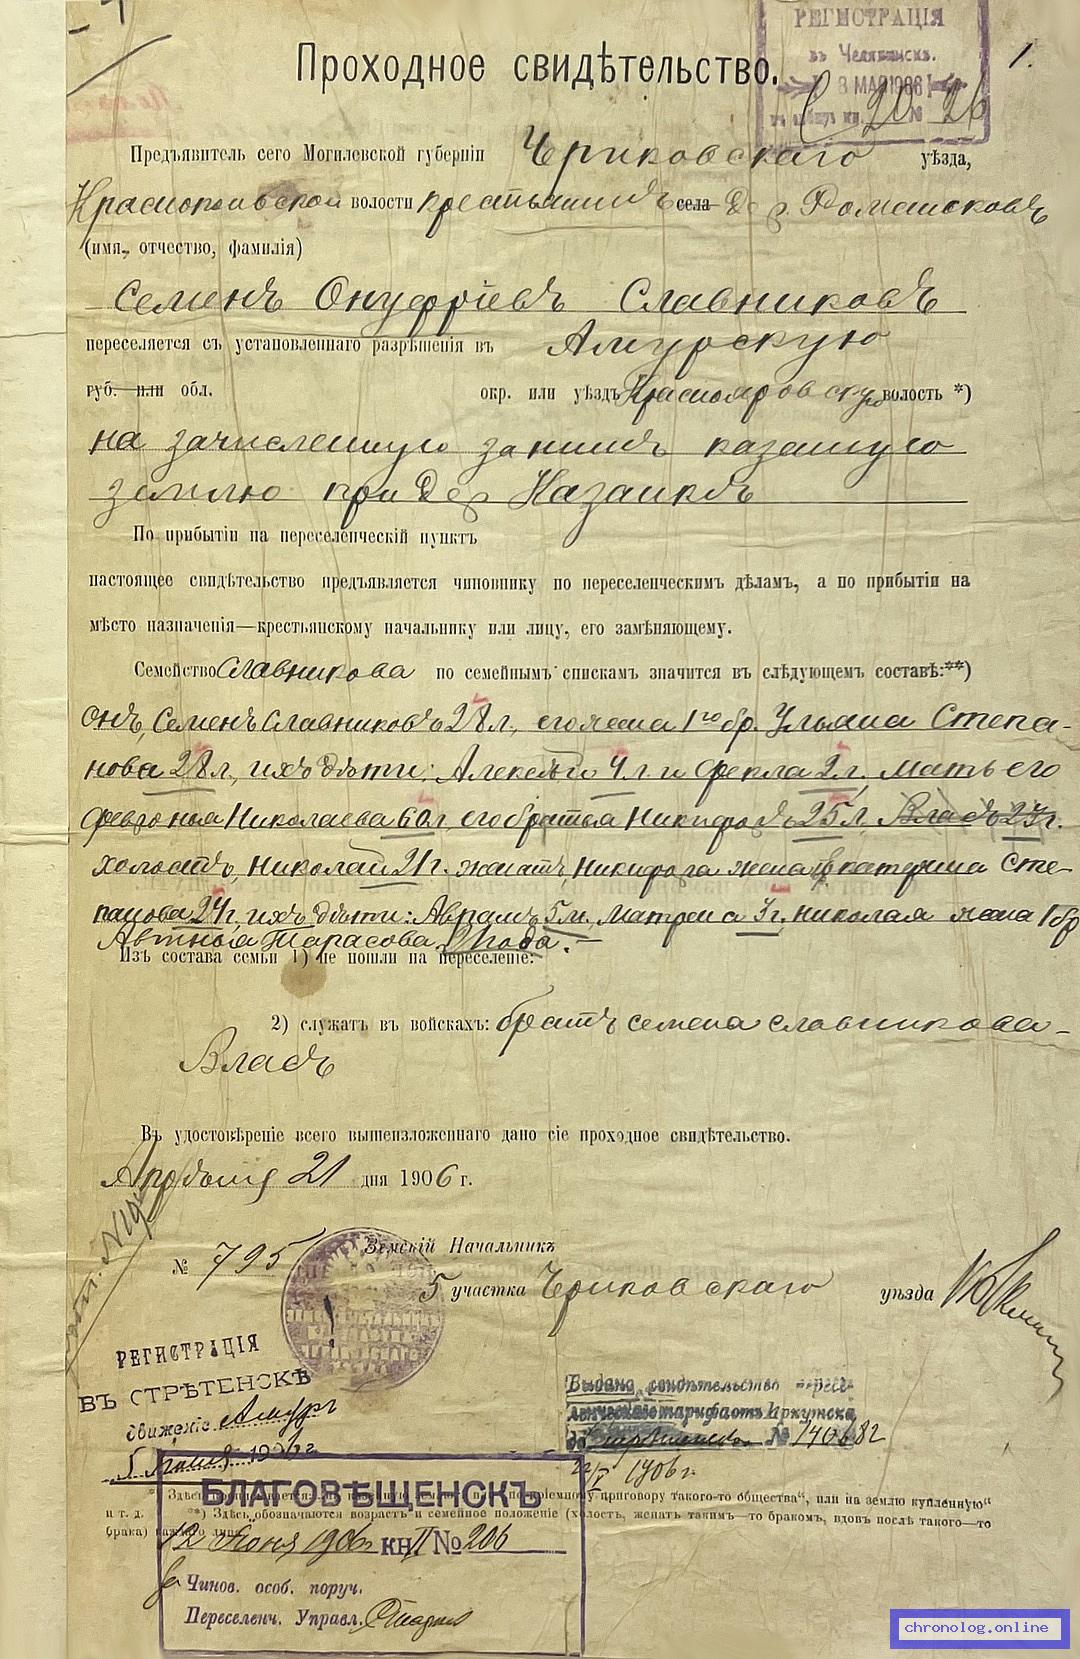 РЕГИСТРАЦІЯ
въ Челябинскѣ.
8 МАЯ 1906
№
1.
Проходное свидѣтельство.
Предъявитель сего Могилевской губерніи Чериковскаго уѣзда,
Краснопольской волости крестьянинъ села дер. Романьковъ
(имя, отчество, фамилія)
Семенъ Онуфріевъ Славниковъ
переселяется съ установленнаго разрѣшенія въ Амурскую
губ. или обл. окр. или уѣздъ Краснояровскую волость *)
на зачисленную за нимъ казенную
землю при дер. Казанкѣ
По прибытіи на переселенческій пунктъ
настоящее свидѣтельство предъявляется чиновнику по переселенческимъ дѣламъ, а по прибытіи на
мѣсто назначенія—крестьянскому начальнику или лицу, его замѣняющему.
Семейство Славникова по семейнымъ спискамъ значится въ слѣдующемъ составѣ:**)
Онъ, Семенъ Славниковъ 28 л., его жена 1го бр. Ульяна Степа-
нова 28 л., ихъ дѣти: Алексѣй 4 л. и Фекла 2 л., мать его
Феврония Николаева 60 л., его братья Никифоръ 25 л., Владъ 23 г.
холостъ, Николай 21 г. женатъ, Никифора жена Екатерина Сте-
панова 24 г., ихъ дѣти: Аврамъ 5 л., Матрена 3 г., Николая жена 1 бр
Тарасова
Изъ состава семьи 1) не пошли на переселеніе:
2) служатъ въ войскахъ: братъ Семена Славникова-
Владъ
Въ удостовѣреніе всего вышеизложеннаго дано сіе проходное свидѣтельство.
Апрѣля 21 дня 1906 г.
№ 795
Земскій Начальникъ
5 участка Чериковскаго уѣзда
РЕГИСТРАЦІЯ
ВЪ СТРѢТЕНСКѢ
движеніе Амуръ
1906 г
Выдано свидѣтельство пересе-
ленческаго тарифа отъ Иркутска
до Стрѣтенска № 140682
22/V 1906 г.
БЛАГОВѢЩЕНСКЪ
12 Іюня 1906 г. кн II № 206
Чинов. особ. поруч.
Переселенч. Управл.
пріемному приговору такого-то общества“, или на землю купленную“
и т. д. **) Здѣсь обозначаются возрастъ и семейное положеніе (холостъ, женатъ такимъ—то бракомъ, вдовъ послѣ такого—то
брака) каждаго лица.
chronolog.online